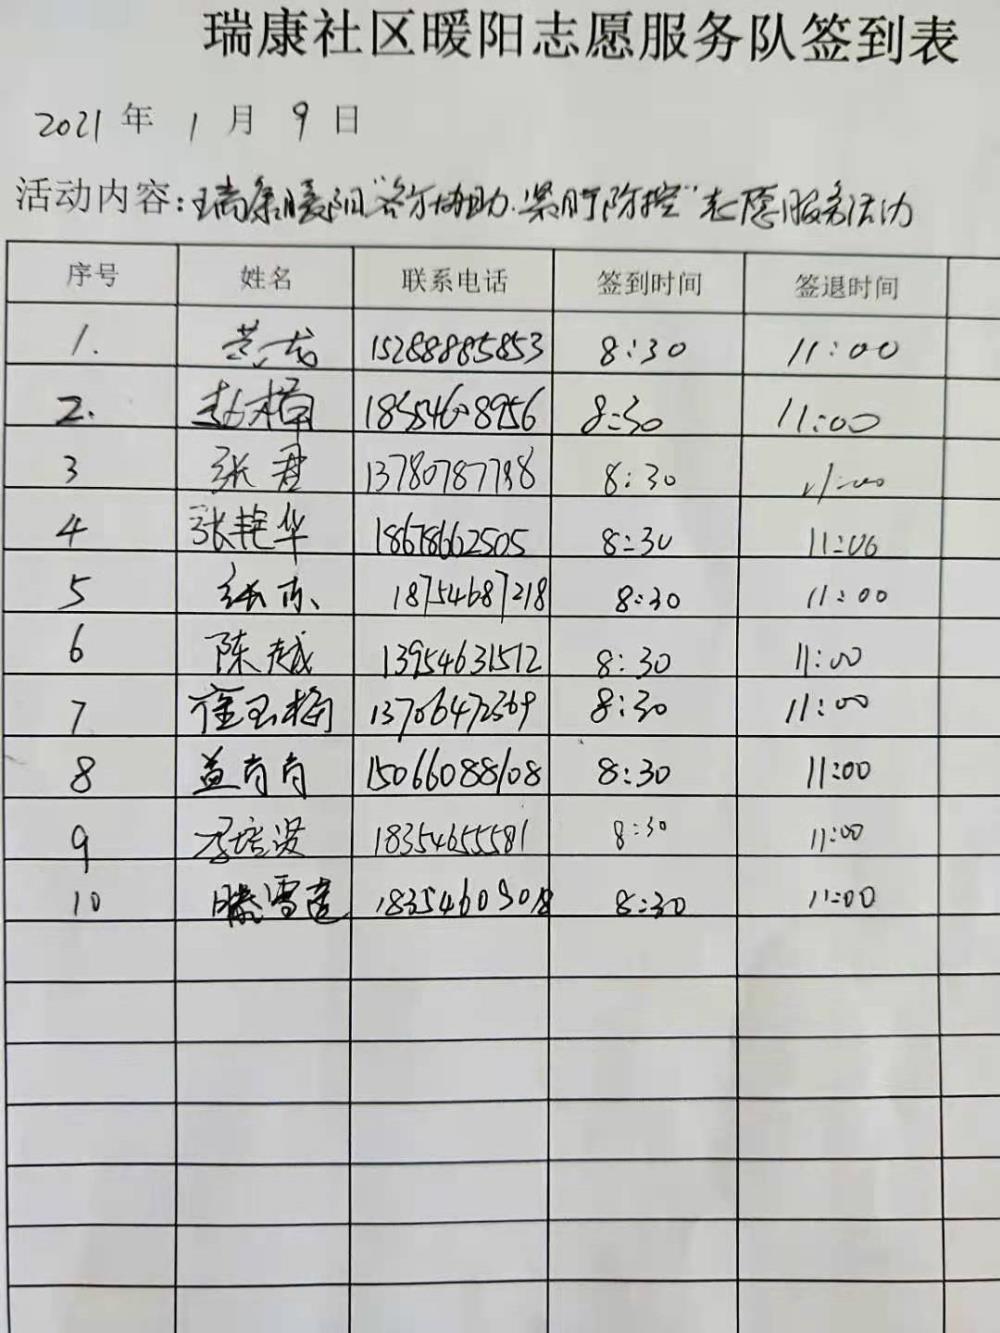 瑞康社区暖阳志愿服务队签到表
2021 年 1 月 9 日
活动内容:瑞康暖阳"各方协助.紧盯防控"志愿服务活动
序号 姓名 联系电话 签到时间 签退时间
1. 15288885853 8:30 11:00
2. 赵楠 8:30 11:00
3 张君 8:30 11:00
4 张艳华 18678662505 8:30 11:06
5 张 18754687218 8:30 11:00
6 陈越 13954631512 8:30 11:00
7 崔玉梅 13706472369 8:30 11:00
8 盖肖肖 15066088108 8:30 11:00
9 李培滨 18354655581 8:30 11:00
10 滕雪莲 18354609018 8:30 11:00